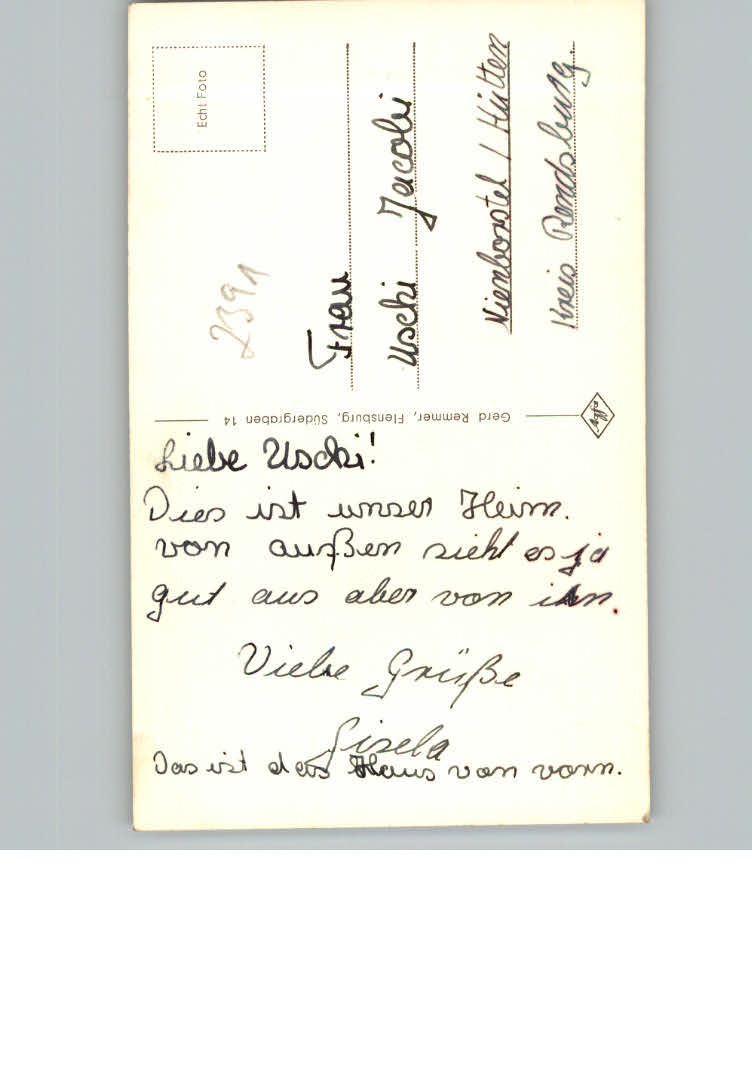 Echt Foto
2391
Frau
Uschi Jacobi
Nienborstel / Hütten
Kreis Rendsburg.
Gerd Remmer, Flensburg, Südergraben 14
Liebe Uschi!
Dies ist unser Heim.
von außen sieht es ja
gut aus aber von inn.
Viele Grüße
Gisela
Das ist das Haus von vorn.